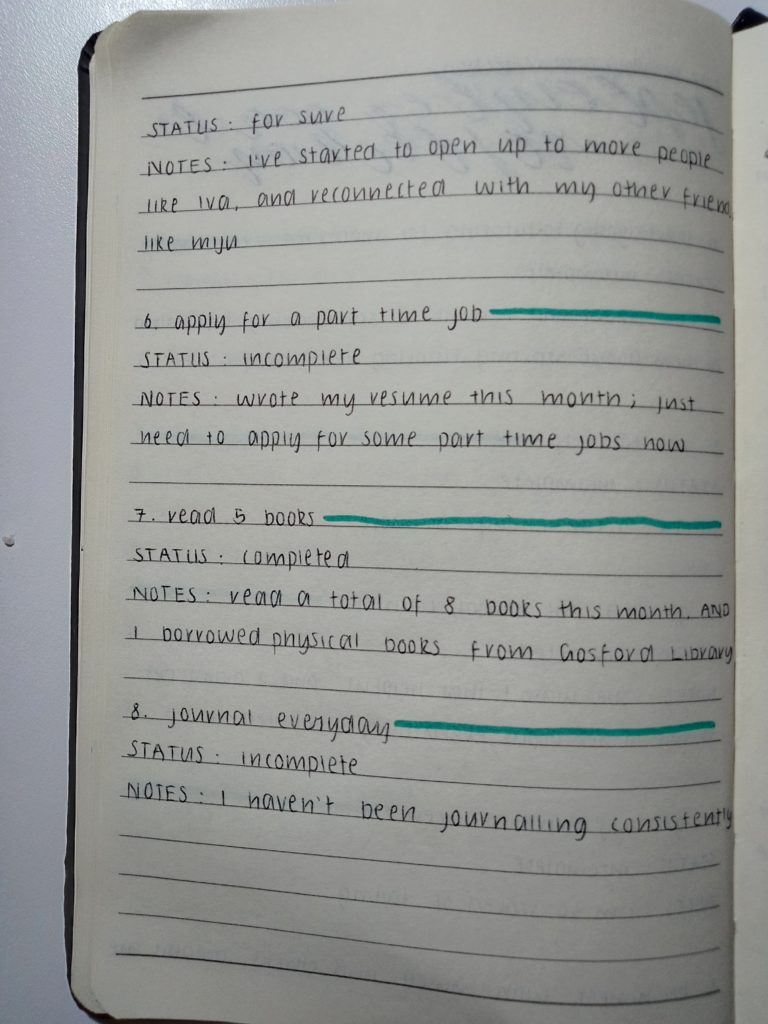 STATUS: for sure
NOTES: I've started to open up to more people
like Iva, and reconnected with my other friend
like myu
6. apply for a part time job
STATUS: incomplete
NOTES: wrote my resume this month; just
need to apply for some part time jobs now
7. read 5 books
STATUS: completed
NOTES: read a total of 8 books this month. AND
I borrowed physical books from Gosford Library
8. journal everyday
STATUS: incomplete
NOTES: I haven't been journalling consistently